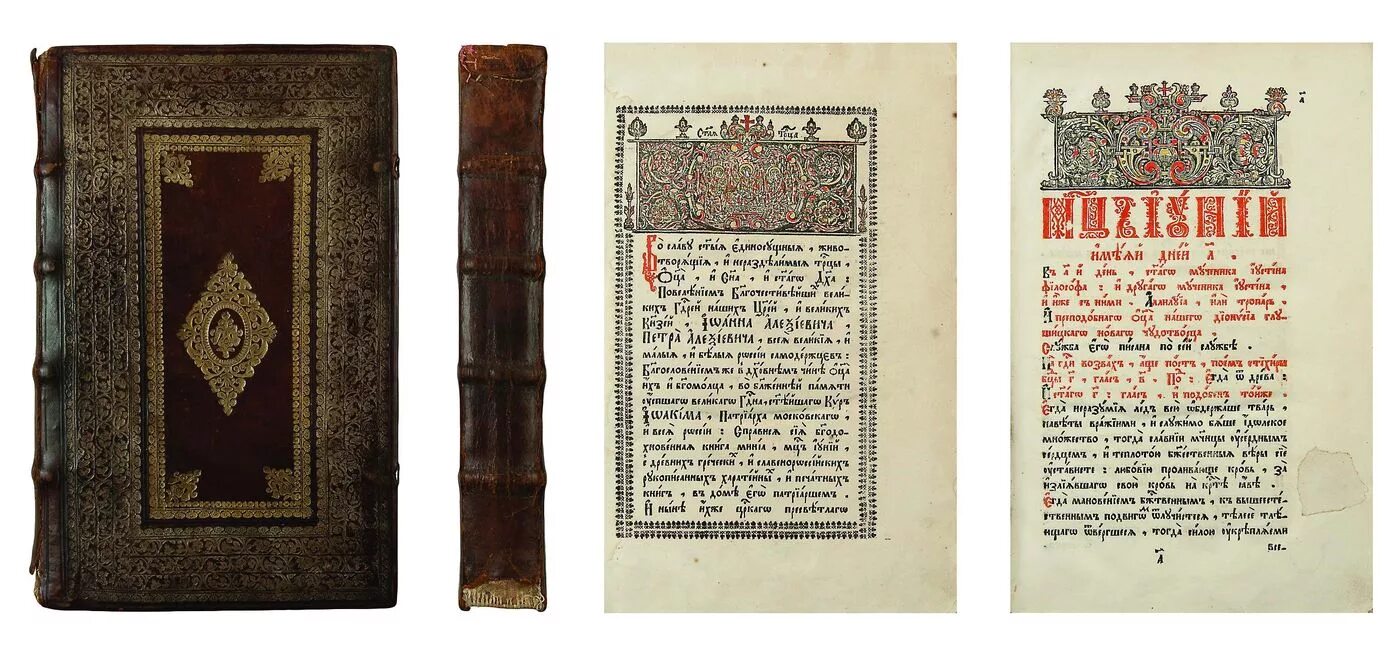 Ст҃аѧ Трⷪ҇ца
Во славу ст҃ыѧ единосущныѧ , живо-
творѧщїѧ , и нераздѣлимыѧ трⷪ҇цы ,
Ѻц҃а , и Сн҃а , и ст҃агѡ Дх҃а :
Повелѣнїемъ Благочестивѣйшиⷯ вели-
кихъ Гдⷭ҇рей нашихъ Цр҃ей , и великихъ
Кнѕей , Іѡанна Алеѯїевича ,
Петра Алеѯїевича , всеѧ великїѧ , и
малыѧ , и бѣлыѧ рѡссїи самодержцевъ :
Благословенїемъ же в дховнемъ чинѣ ѻц҃а
ихъ и бг҃омолца , во бл҃женнѣй памѧти
оусопшагѡ великагѡ Гдⷭ҇на , ст҃ѣйшагѡ Кѵръ
Іѡакіма , Патрїарха московскагѡ ,
и всеѧ рѡссїи : Справисѧ сїѧ бг҃одо-
хновеннаѧ книга минїа , мцⷭ҇ъ іунїй ,
с древнихъ греческиⷯ , и славенорѡссїйскихъ
рукописанныхъ харатейныⷯ , и печатныхъ
книгъ , въ домѣ егѡ патрїаршем .
И нынѣ ихже цр҃скагѡ пресвѣтлагѡ
а҃
мцⷭ҇ъ іунїй
имѣѧй дней л҃ .
Въ а҃ й день , ст҃агѡ мученика іустїна
філосѡфа : и другагѡ мученика іустїна ,
и иже съ ними . Аллилуїа , или тропарь .
И преподобнагѡ ѻц҃а нашегѡ дїѻнѵсїа глу-
шицкагѡ новагѡ чудотворца .
Служба егѡ писана по сей службѣ .
На гдⷭ҇и воззвахъ , аще постъ , поемъ стїхиры
бцⷣы г҃ , гласъ , в҃ . Поⷣ : Егда ѿ древа :
И ст҃агѡ г҃ : гласъ , и подобен тойже .
Егда неразумїѧ ледъ всю ѡбдержаше тварь ,
навѣты вражїими , и служимо бѧше їдѡлское
множество , тогда славнїи мч҃нцы оусерднымъ
сердцемъ , и теплотою бж҃ественныѧ вѣры сїе
оустависте : любовїю проливающе кровь , за
излїѧвшагѡ свою кровь на крⷭ҇тѣ славѣ .
Егда мановенїемъ бжⷭ҇твеннымъ , къ вышеесте-
ственнымъ подвигѡмъ ѿлучистесѧ , тѣлесе тлѣ-
ющагѡ ѿвергшесѧ , тогда силою оукрѣплѧеми
все-
а҃